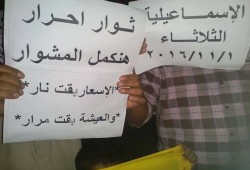 الإسماعيلية
الثلاثاء
٢٠١٦/١١/١
ثوار احرار
هنكمل المشوار
*الاسعار بقت نار*
*والعيشة بقت مرار*